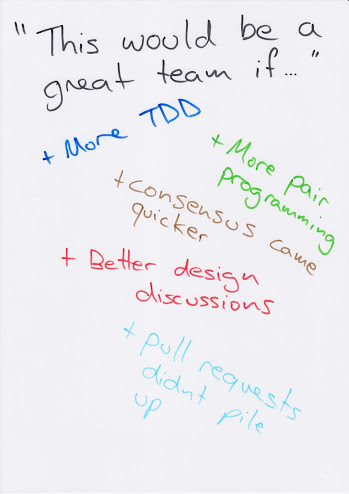 "This would be a
great team if..."
+ More TDD
+ More pair
programming
+ consensus came
quicker
+ Better design
discussions
+ pull requests
didnt pile
up